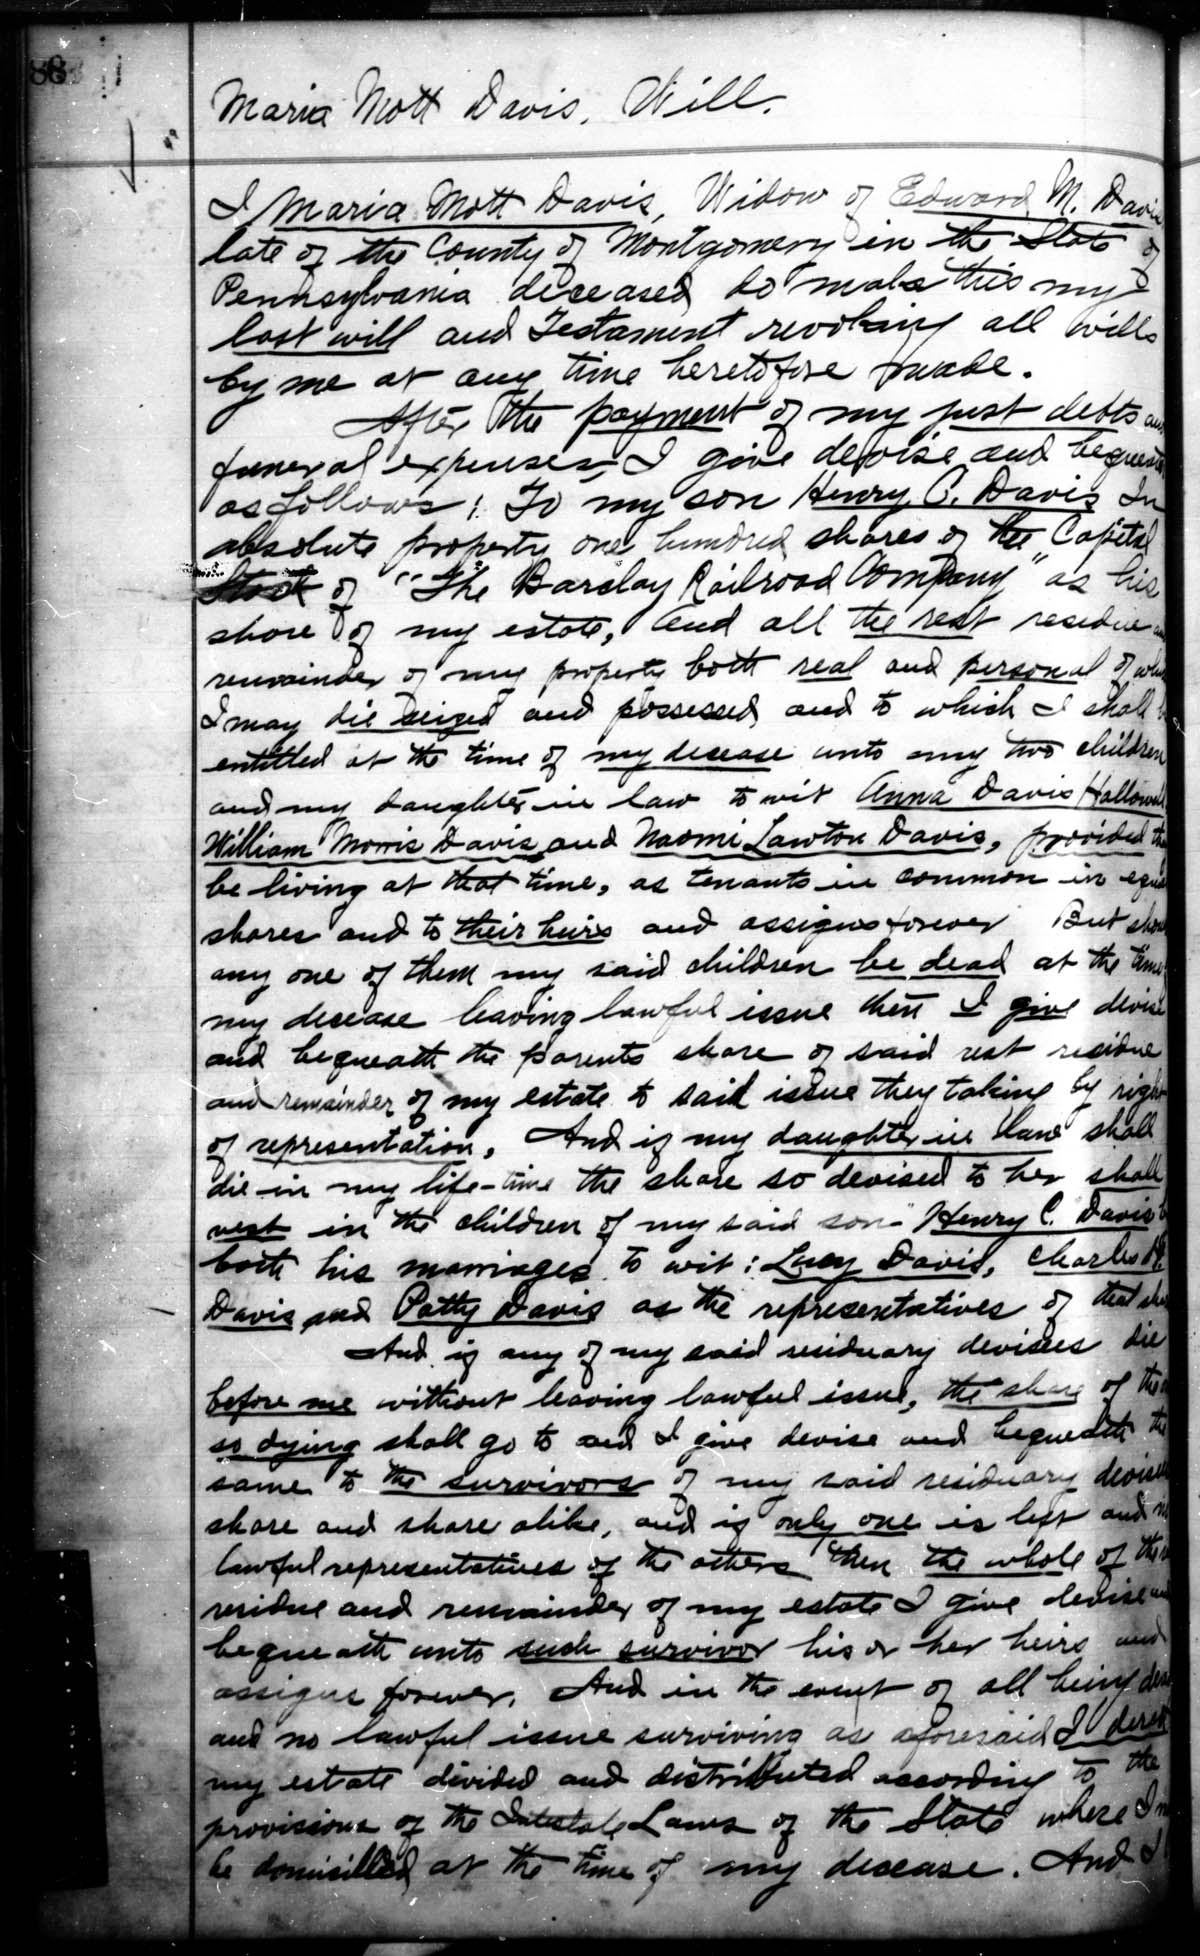 88
Maria Mott Davis, Will.
I Maria Mott Davis, Widow of Edward M. Davis
late of the County of Montgomery in the State of
Pennsylvania deceased do make this my
last will and Testament revoking all wills
by me at any time heretofore made.
After the payment of my just debts and
funeral expenses, I give devise and bequeath
as follows: To my son Henry C. Davis In
absolute property one hundred shares of the Capital
Stock of "The Barclay Railroad Company" as his
share of my estate, and all the rest residue and
remainder of my property both real and personal of
I may die seized and possessed and to which I shall
entitled at the time of my decease unto my two children
and my daughter in law to wit Anna Davis Hallowell
William Morris Davis and Naomi Lawton Davis, provided
be living at that time, as tenants in common in equal
shares and to their heirs and assigns forever But
any one of them my said children be dead at the time
my decease leaving lawful issue then I give devise
and bequeath the parents share of said rest residue
and remainder of my estate to said issue they taking by right
of representation. And if my daughter in law shall
die in my life-time the share so devised to her shall
vest in the children of my said son Henry C. Davis
both his marriages to wit: Lucy Davis, Charles
Davis and Patty Davis as the representatives of that
And if any of my said residuary devisees die
before me without leaving lawful issue, the share of
so dying shall go to and I give devise and bequeath the
same to the survivors of my said residuary
share and share alike, and if only one is left and
lawful representatives of the others then the whole of the
residue and remainder of my estate I give devise and
bequeath unto such survivor his or her heirs and
assigns forever. And in the event of all being
and no lawful issue surviving as aforesaid I direct
my estate divided and distributed according to the
provisions of the Intestate Laws of the State where I
be domicilled at the time of my decease. And I